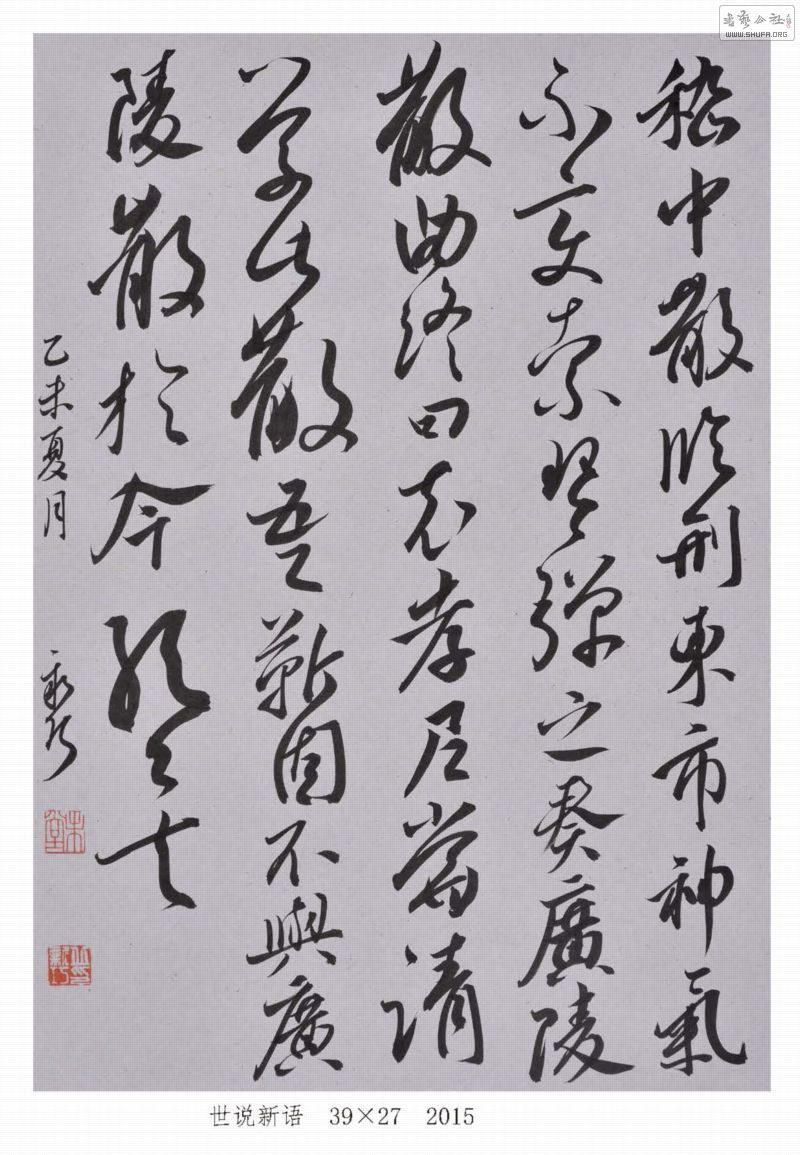 書藝公社
WWW.SHUFA.ORG
嵇中散臨刑東市神氣
不變索琴彈之奏廣陵
散曲終曰袁孝尼當請
學此散吾靳固不與廣
陵散於今絕矣
乙未夏月
世说新语 39×27 2015